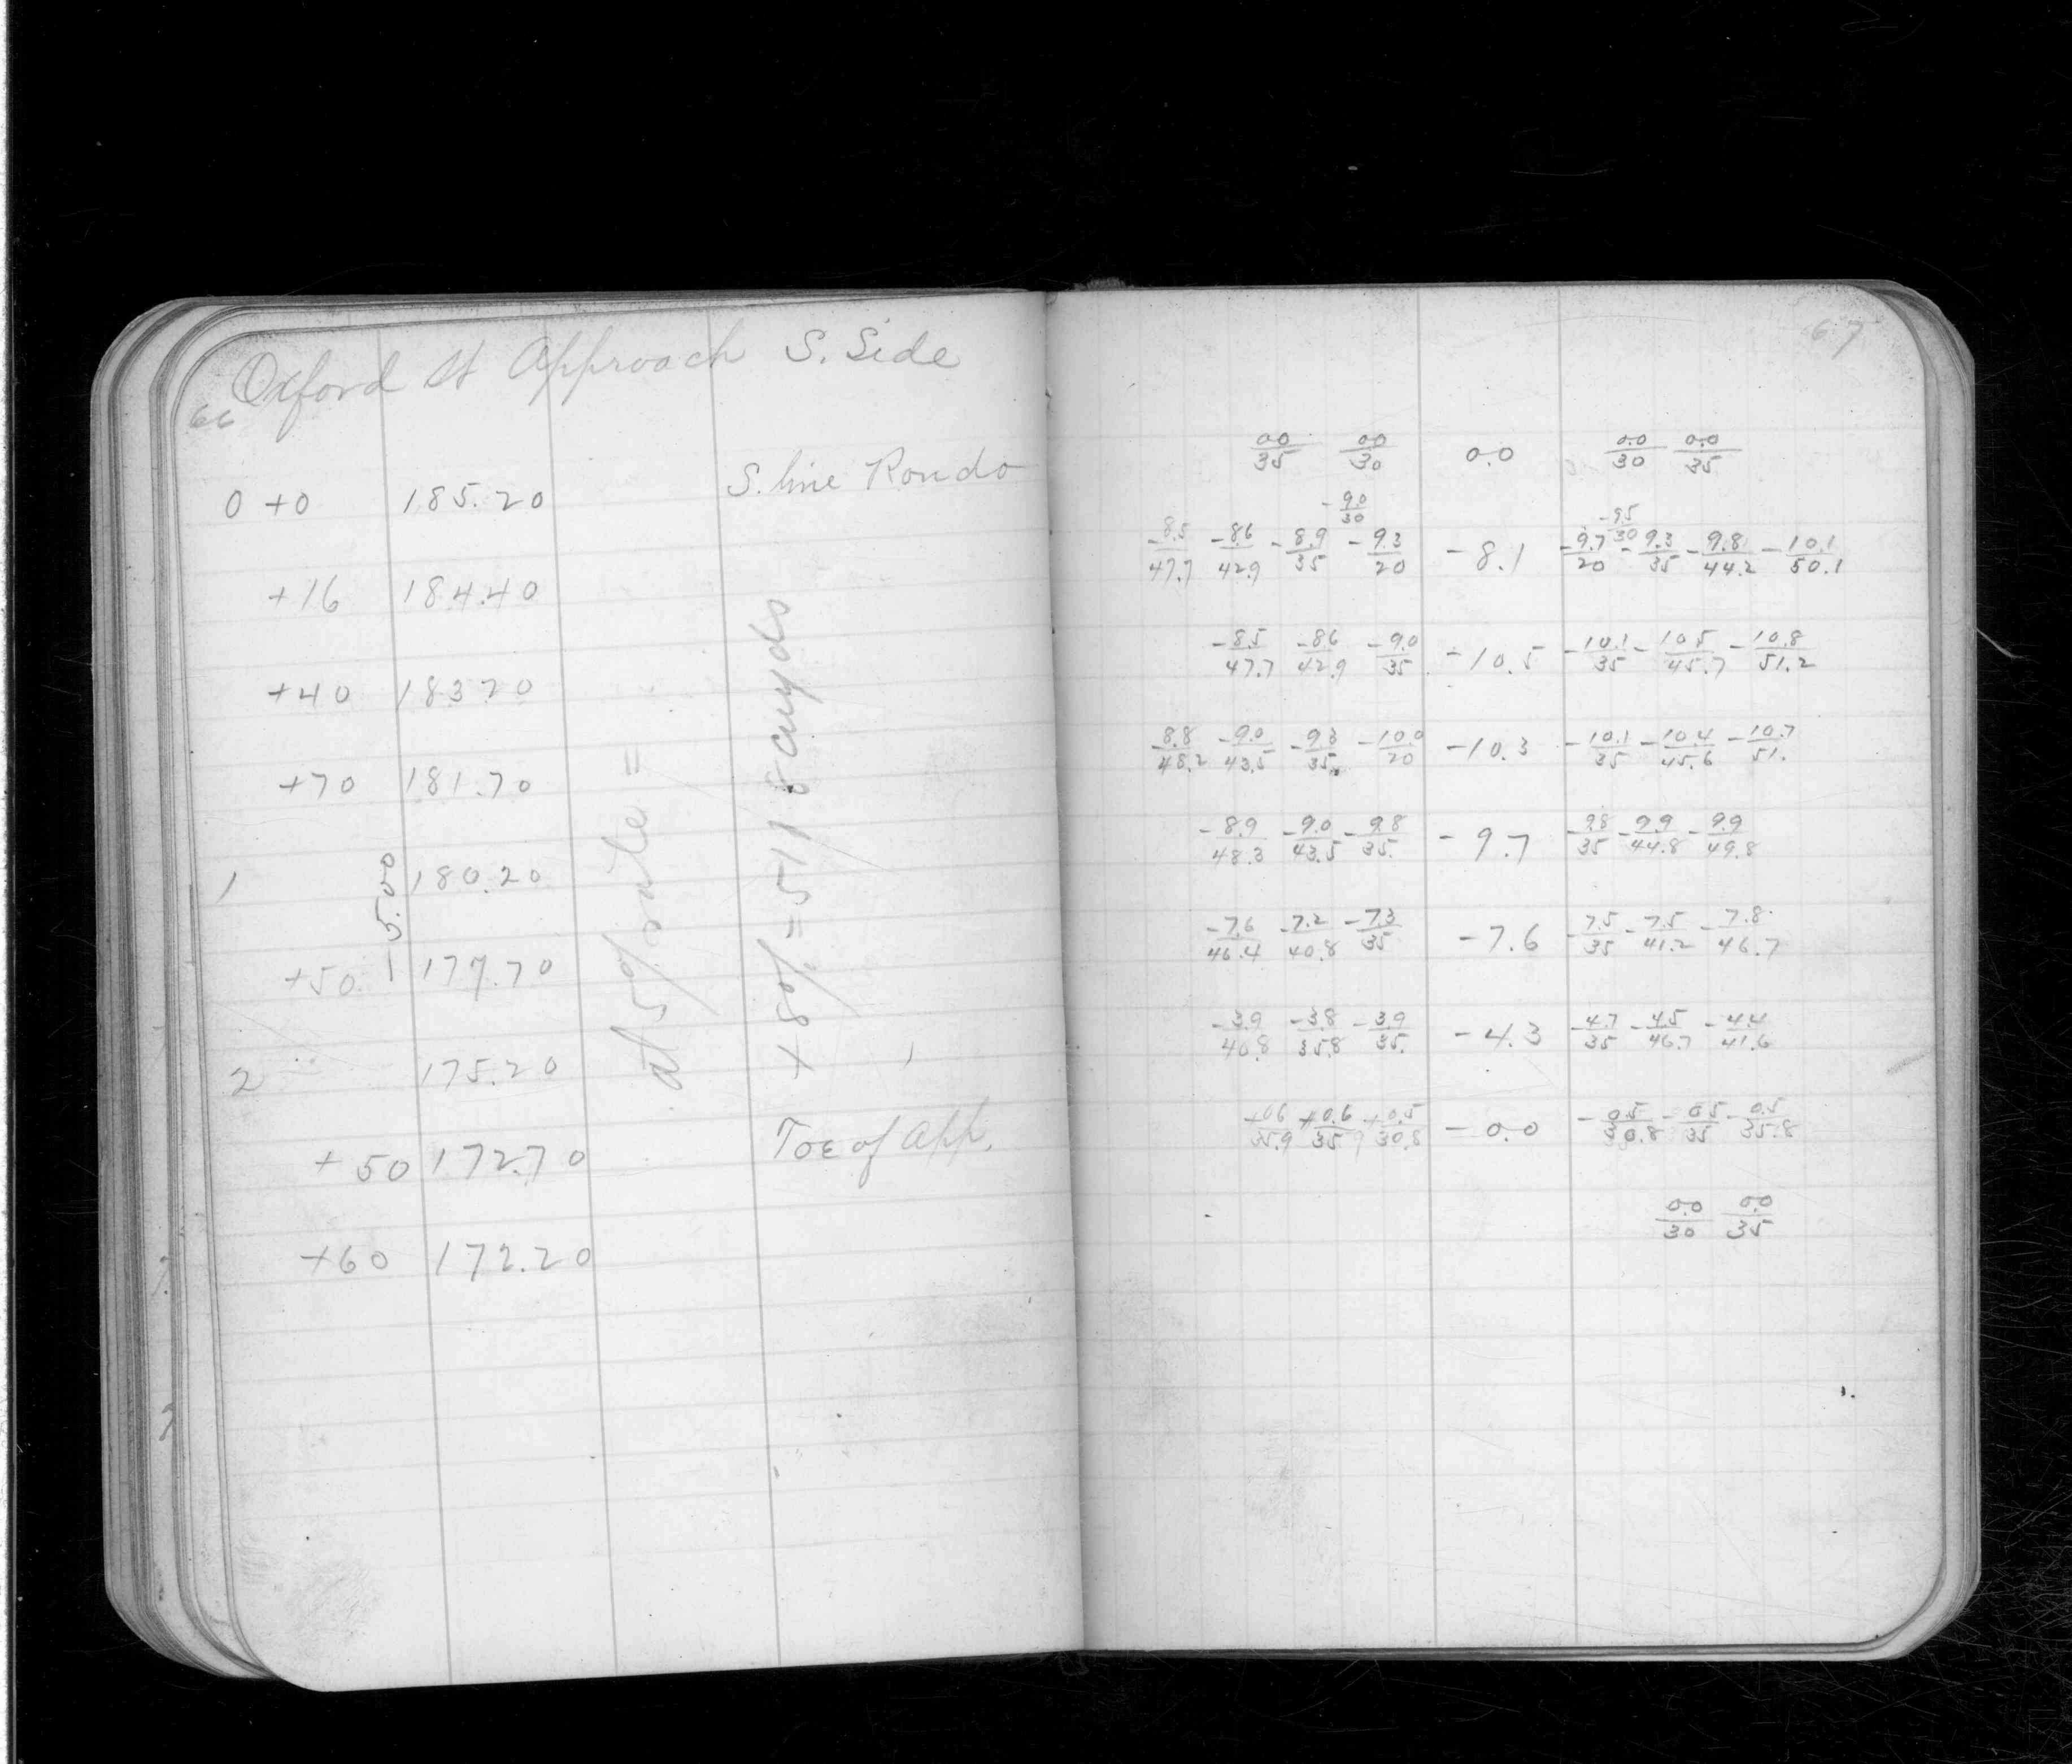 Oxford St Approach S. Side
66
S. line Rondo
0 +0 185.20
+16 184.40
+40 183.20
+70 181.70
1 180.20
5.00
+50 177.70
2 175.20
+50 172.70 Toe of App.
+60 172.20
at 5% rate =
+ 8% = 5118 cuyds
67
0.0/35 0.0/30 0.0 0.0/30 0.0/35
-9.0/30 -9.5/30
-8.5/47.7 -8.6/42.9 -8.9/35 -9.3/20 -8.1 -9.7/20 -9.3/35 -9.8/44.2 -10.1/50.1
-8.5/47.7 -8.6/42.9 -9.0/35 -10.5 -10.1/35 -10.5/45.7 -10.8/51.2
-8.8/48.2 -9.0/43.5 -9.3/35. -10.0/20 -10.3 -10.1/35 -10.4/45.6 -10.7/51.
-8.9/48.3 -9.0/43.5 -9.8/35. -9.7 -9.8/35 -9.9/44.8 -9.9/49.8
-7.6/46.4 -7.2/40.8 -7.3/35 -7.6 -7.5/35 -7.5/41.2 -7.8/46.7
-3.9/40.8 -3.8/35.8 -3.9/35. -4.3 -4.7/35 -4.5/46.7 -4.4/41.6
+0.6/35.9 +0.6/35 +0.5/30.8 -0.0 -0.5/30.8 -0.5/35 -0.5/35.8
0.0/30 0.0/35